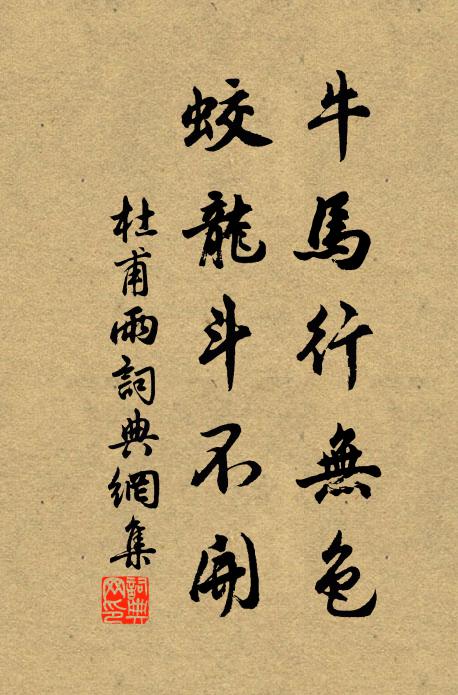 牛馬行無色
蛟龍斗不開
杜甫雨詞典網集
詞典网印